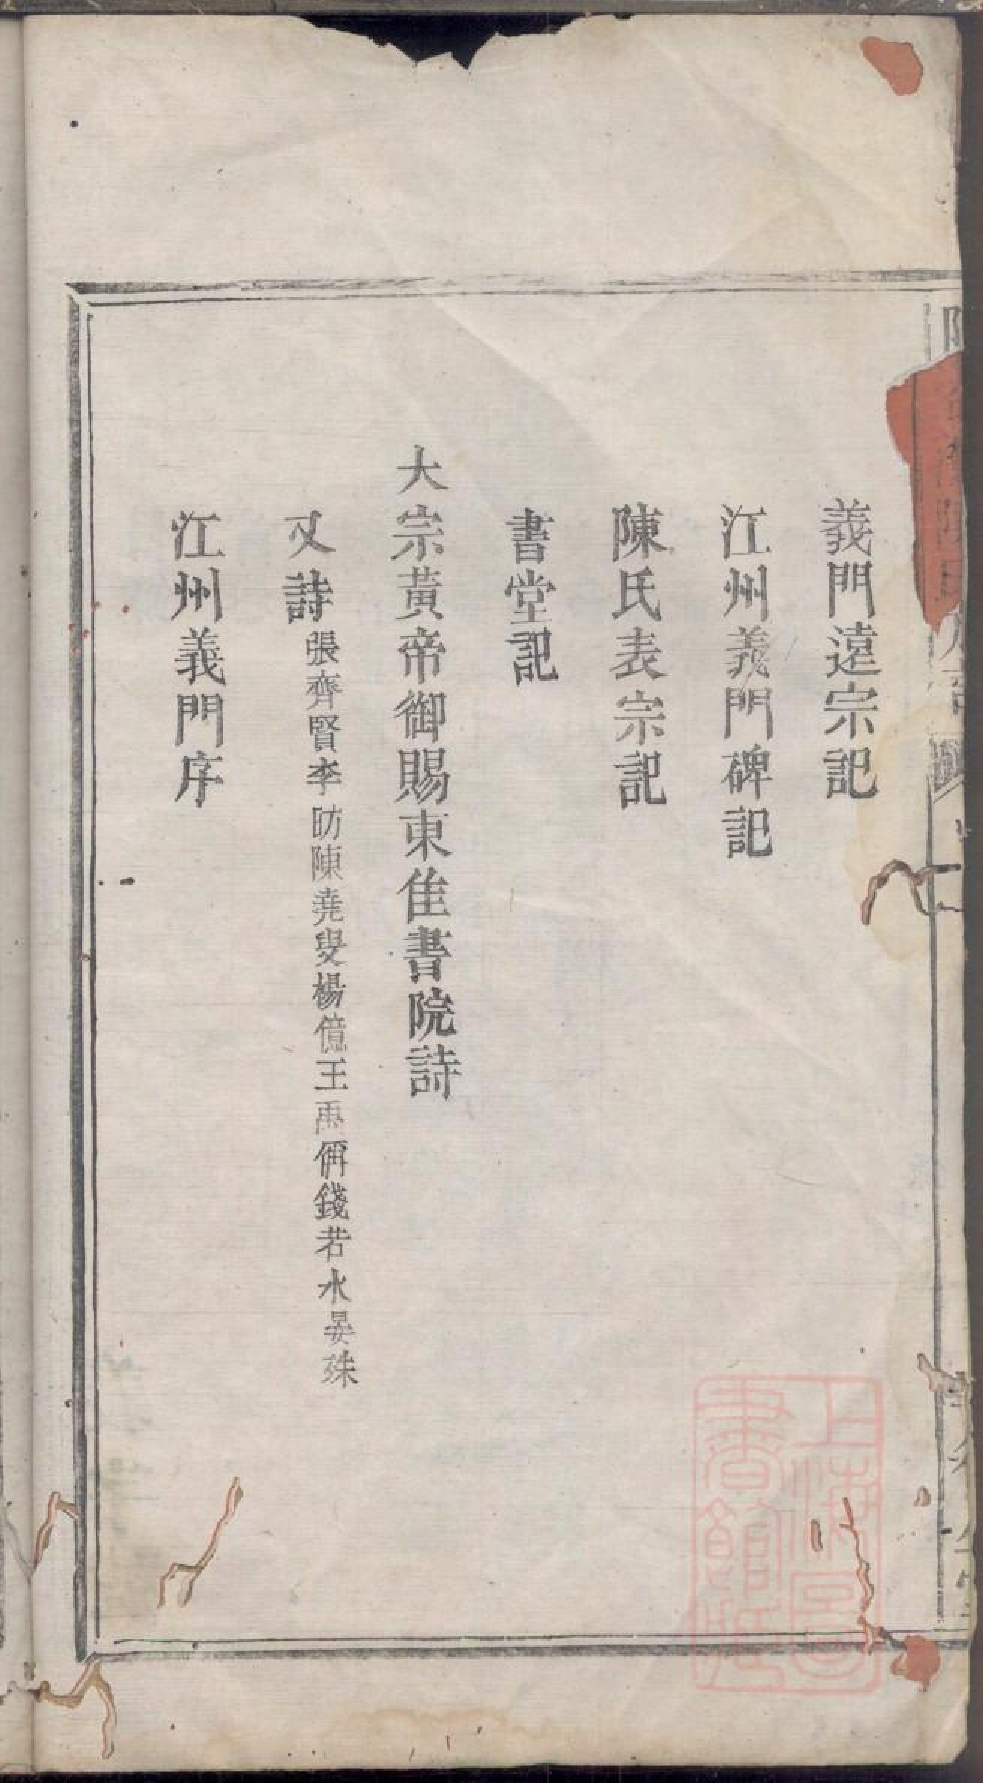 義門遠宗記
江州義門碑記
陳氏表宗記
書堂記
大宗黃帝御賜東隹書院詩
又詩張齊賢李昉陳堯叟楊億王禹偁錢若水晏殊
江州義門序
上海圖書館藏